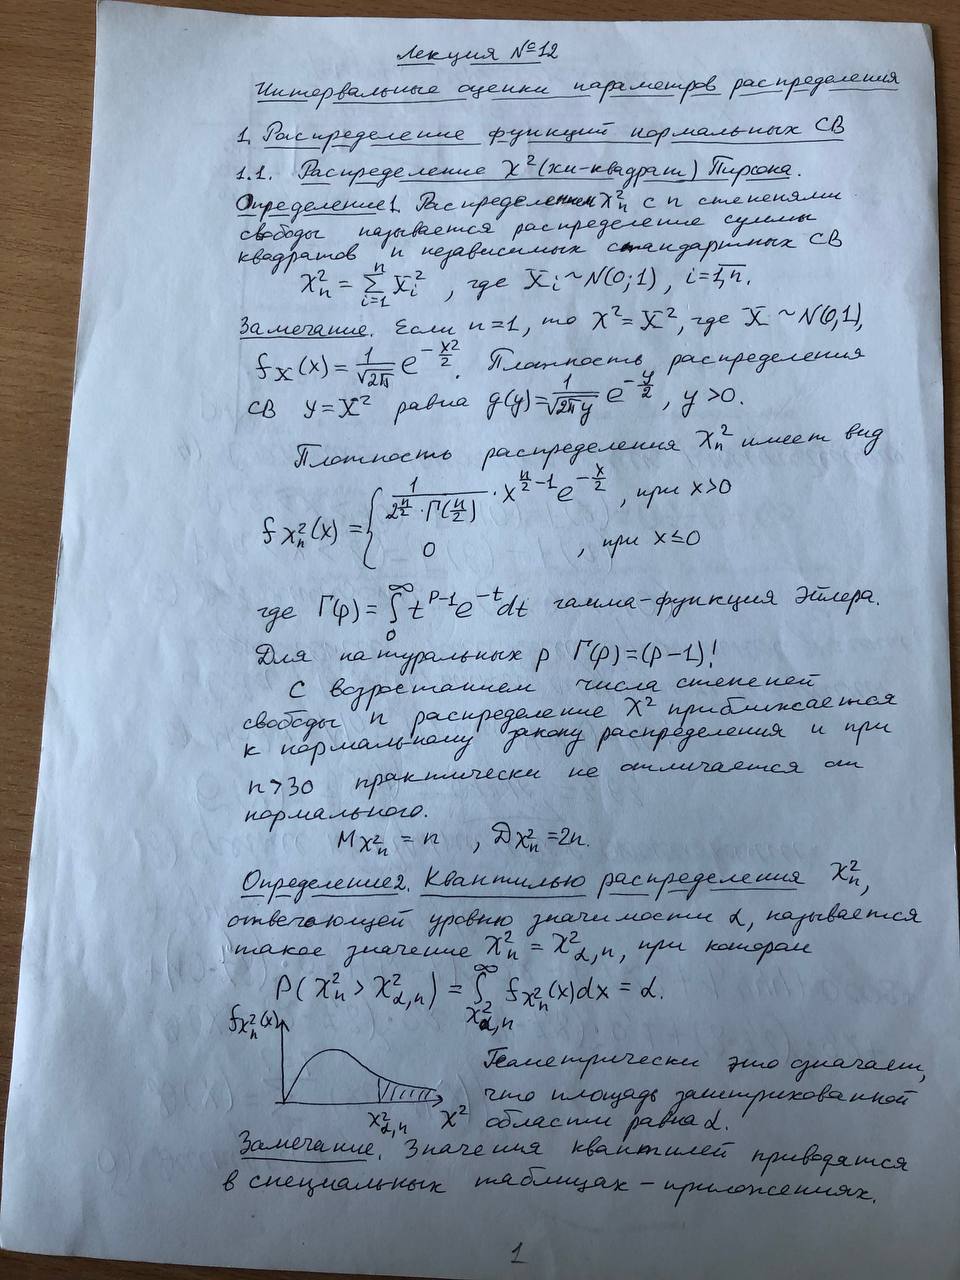 Лекция №12
Интервальные оценки параметров распределения
1. Распределение функций нормальных СВ
1.1. Распределение χ² (хи-квадрат) Пирсона.
Определение1. Распределением χ²ₙ с n степенями
свободы называется распределение суммы
квадратов n независимых стандартных СВ
χ²ₙ = Σᵢ₌₁ⁿ Xᵢ² , где Xᵢ ~ N(0;1) , i=1,n.
Замечание. Если n=1, то χ² = X², где X ~ N(0,1),
f_X(x) = 1/√(2π) e^(-x²/2). Плотность распределения
СВ Y = X² равна g(y) = 1/√(2πy) e^(-y/2) , y > 0.
Плотность распределения χₙ² имеет вид
f_χ²ₙ(x) = { 1/(2^(n/2) · Γ(n/2)) · x^(n/2 - 1) e^(-x/2) , при x>0
0 , при x ≤ 0
где Γ(p) = ∫₀^∞ t^(p-1) e^(-t) dt гамма-функция Эйлера.
Для натуральных p Γ(p) = (p-1)!
С возростанием числа степеней
свободы n распределение χ² приближается
к нормальному закону распределения и при
n > 30 практически не отличается от
нормального.
M χ²ₙ = n , D χ²ₙ = 2n.
Определение2. Квантилью распределения χ²ₙ,
отвечающей уровню значимости α, называется
такое значение χ²ₙ = χ²_α,n, при котором
P(χ²ₙ > χ²_α,n) = ∫_χ²_α,n^∞ f_χ²ₙ(x)dx = α.
f_χ²ₙ(x)
Геометрически это означает,
что площадь заштрихованной
χ²_α,n χ² области равна α.
Замечание. Значения квантилей приводятся
в специальных таблицах - приложениях.
1